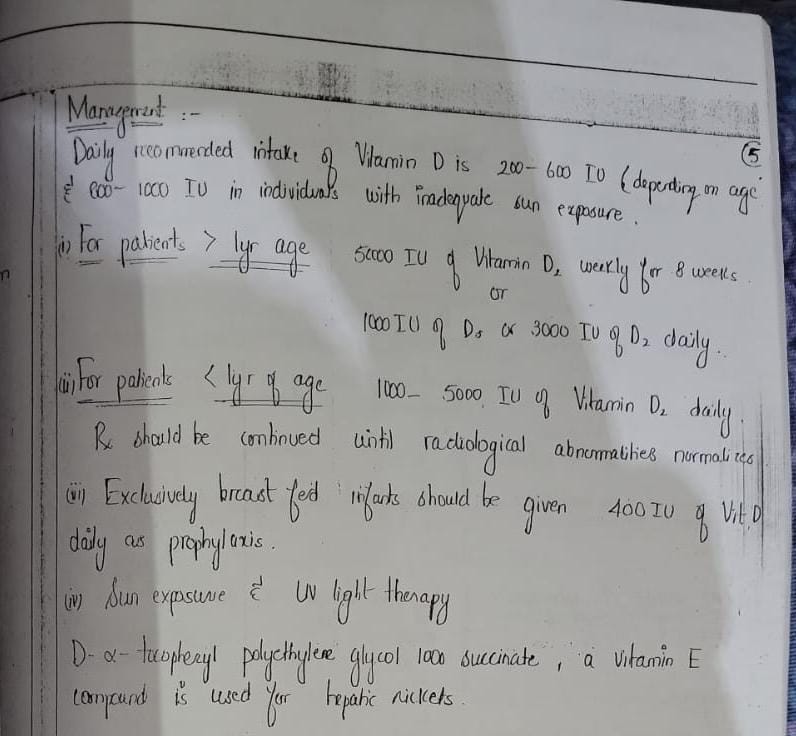 Management :-
⑤
Daily recommended intake of Vitamin D is 200-600 IU (depending on age
& 800-1000 IU in individuals with inadequate sun exposure.
(i) For patients > 1yr age 50000 IU of Vitamin D2 weekly for 8 weeks
or
1000 IU of D3 or 3000 IU of D2 daily.
(ii) For patients < 1yr of age 1000-5000 IU of Vitamin D2 daily.
Rx should be continued until radiological abnormalities normalizes
(iii) Exclusively breast fed infants should be given 400 IU of Vit.D
daily as prophylaxis.
(iv) Sun exposure & UV light therapy
D-α-tocopheryl polyethylene glycol 1000 succinate, a vitamin E
compound is used for hepatic rickets.